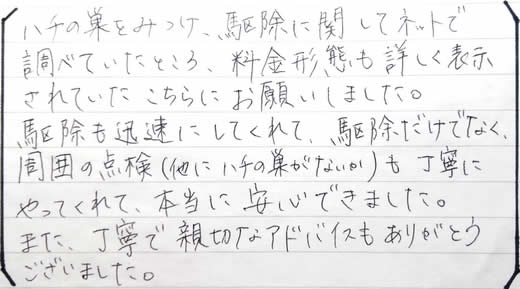 ハチの巣をみつけ、駆除に関してネットで
調べていたところ、料金形態も詳しく表示
されていたこちらにお願いしました。
駆除も迅速にしてくれて、駆除だけでなく、
周囲の点検(他にハチの巣がないか)も丁寧に
やってくれて、本当に安心できました。
また、丁寧で親切なアドバイスもありがとう
ございました。